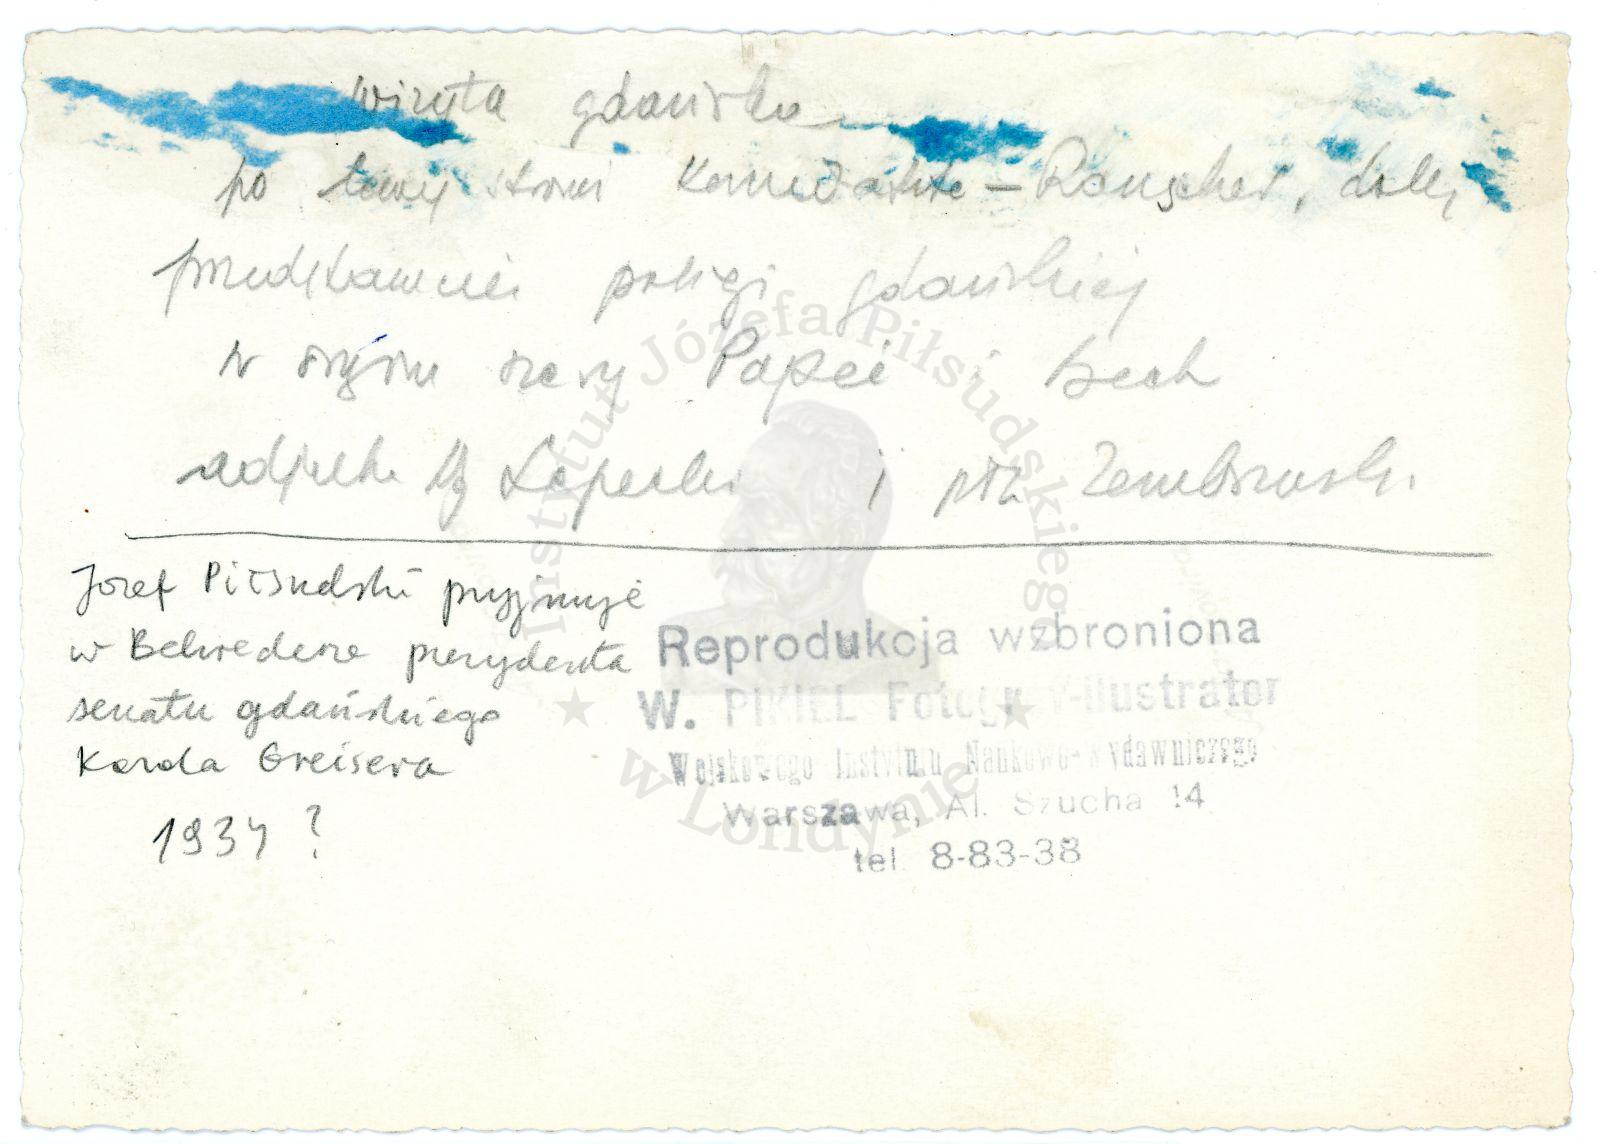 wizyta gdańska
po lewej stronie Komisarz – Rauscher, dalej
przedstawiciel policji gdańskiej
w Papeé i Beck
adjutke Lepecki i płk
Józef Piłsudski przyjmuje
w Belwederze prezydenta
senatu gdańskiego
Karola Greisera
1934 ?
Reprodukcja wzbroniona
W. PIKIEL Fotogr -ilustrator
Wojskowego Instytutu Naukowo-wydawniczego
Warszawa, Al. Szucha 14
tel. 8-83-38
Instytut Józefa Piłsudskiego
w Londynie